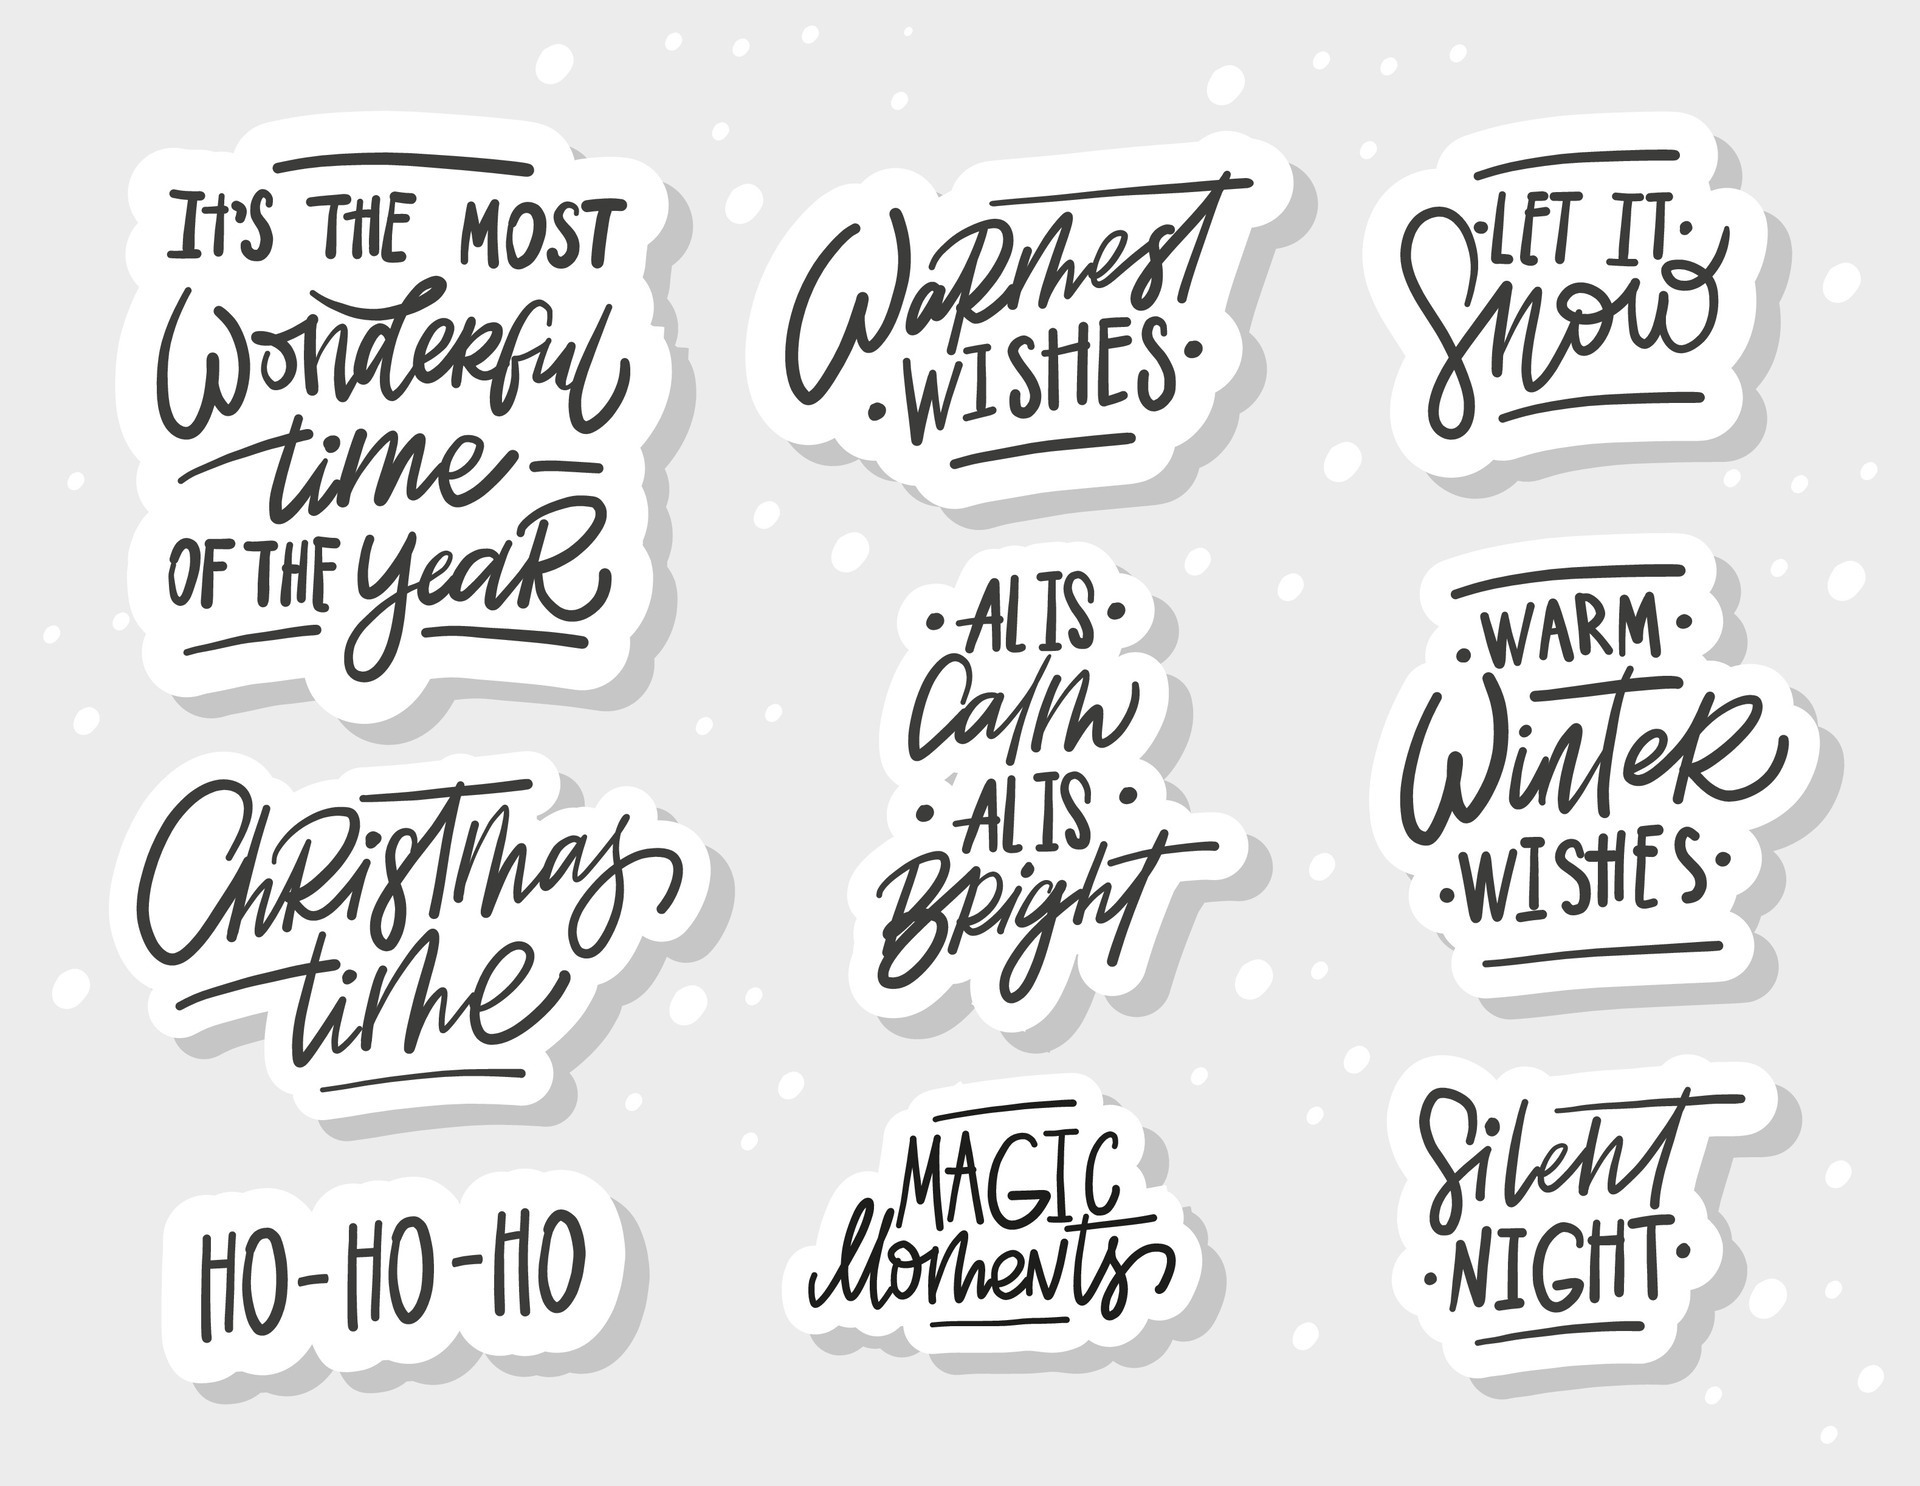 IT'S THE MOST
Wonderful
time
OF THE yeaR
Warmest
WISHES
LET IT
Snow
AL IS
Calm
AL IS
Bright
WARM
Winter
WISHES
Christmas
time
HO-HO-HO
MAGIC
Moments
Silent
NIGHT